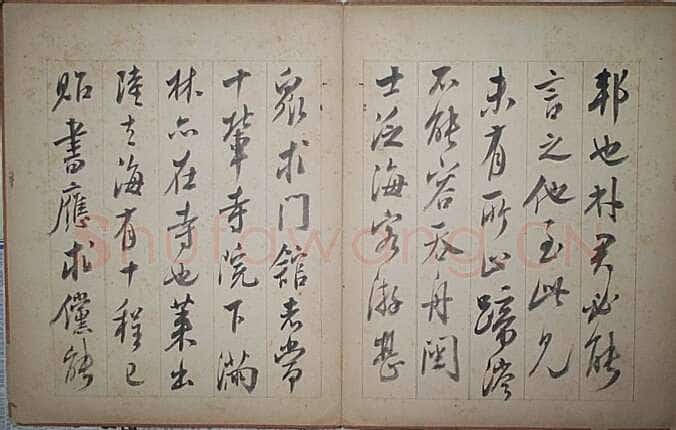 邦也朴君必能
言之他至此見
未有所止蹄涔
不能容吞舟閩
士泛海客游甚
眾求門館者常
十輩寺院下滿
林亦在寺也萊出
陸去海有十程已
貽書應求儻能
Shufawang.CN